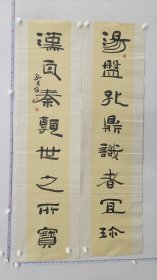 湯盤孔鼎識者宜珍
漢瓦秦顆世之所寶